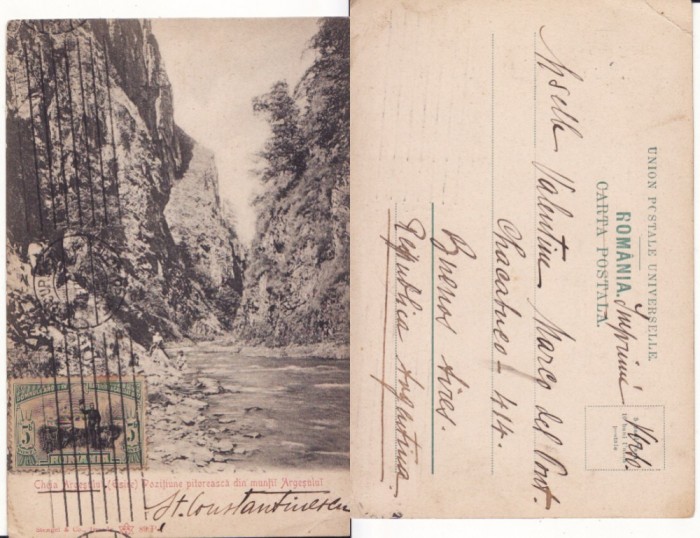 5 5
Cheia Argeșului (Gaure) Pozițiune pitorească din munții Argeșului
St. Constantinescu
UNION POSTALE UNIVERSELLE.
ROMÂNIA.
CARTA POSTALA.
Imprimé
Mselle Valentine Marco del Pont.
Chacabuco - 414.
Buenos Aires.
Republica Argentina